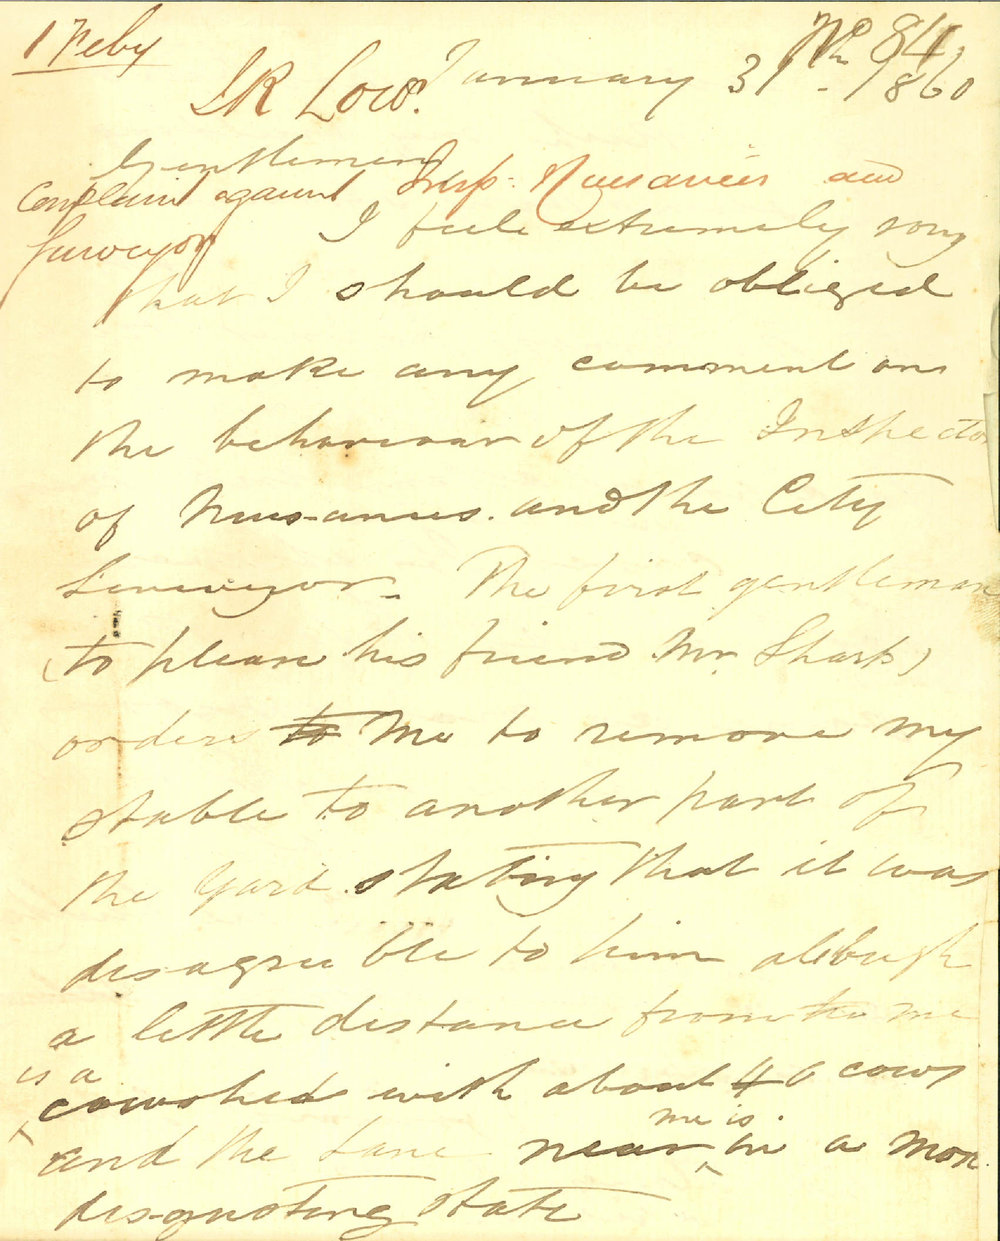 1 Feby
No 84
January 31 - 1860
JR Low
Gentlemen
Complaint against Insp. Nuisances and
Surveyor
I feel extremely sorry
that I should be obliged
to make any comment on
the behaviour of the Inspector
of Nuisances. and the City
Surveyor. The first gentleman
(to please his friend Mr. Sharp)
orders to me to remove my
stable to another part of
the yard stating that it was
disagreeable to him although
a little distance from to me
is a
cowshed with about 40 cows
me is
and the Lane near in a most
disgusting state